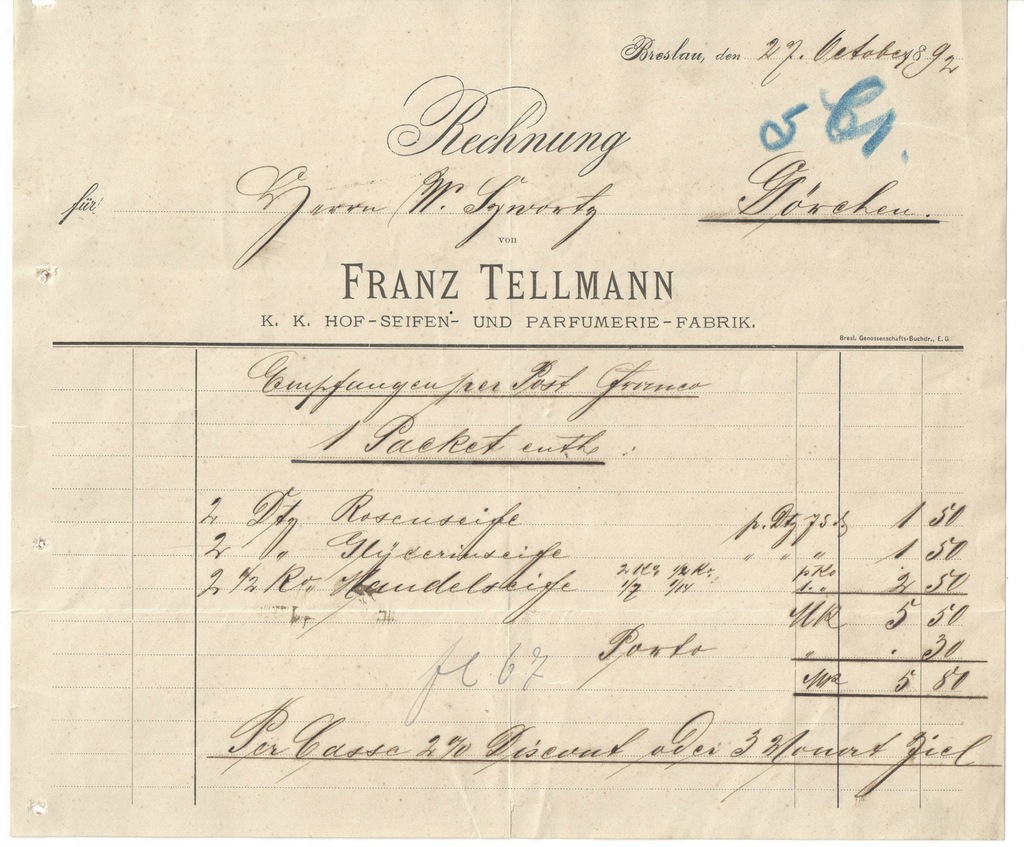 Breslau, den 27. October 1892
Rechnung
für Herrn W. Görchen.
von
FRANZ TELLMANN
K. K. HOF-SEIFEN- UND PARFUMERIE-FABRIK.
Bresl. Genossenschafts-Buchdr., E. G.
Empfangen per Post Franco
1 Packet enth:
2 Dtz Rosenseife p. Dtz 75 1 50
2 " Glÿcerinseife " " " 1 50
2 1/2 Ko. Mandelseife 2 Ko 1/2 Ko. p Ko 1. " 2 50
1/7 1/14
Mk 5 50
Porto " . 30
Mk 5 80
Per Cassa 2% Discont oder 3 Monat Ziel